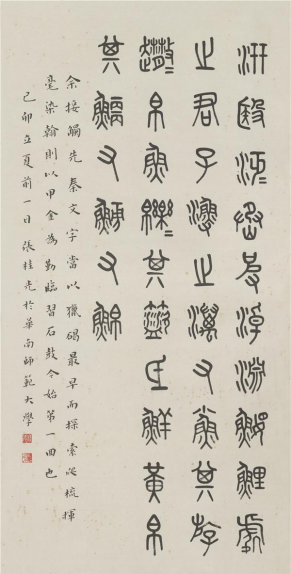 汧殹沔=烝皮淖淵鰋鯉處
之君子漁之澫又小魚其斿
帛魚皪=其氐鮮黃帛
其鯾又又
余接觸先秦文字當以獵碣最早而探索爬梳揮
毫染翰則以甲金為勤臨習石鼓今始第一回也
己卯立夏前一日張桂光於華南師範大學